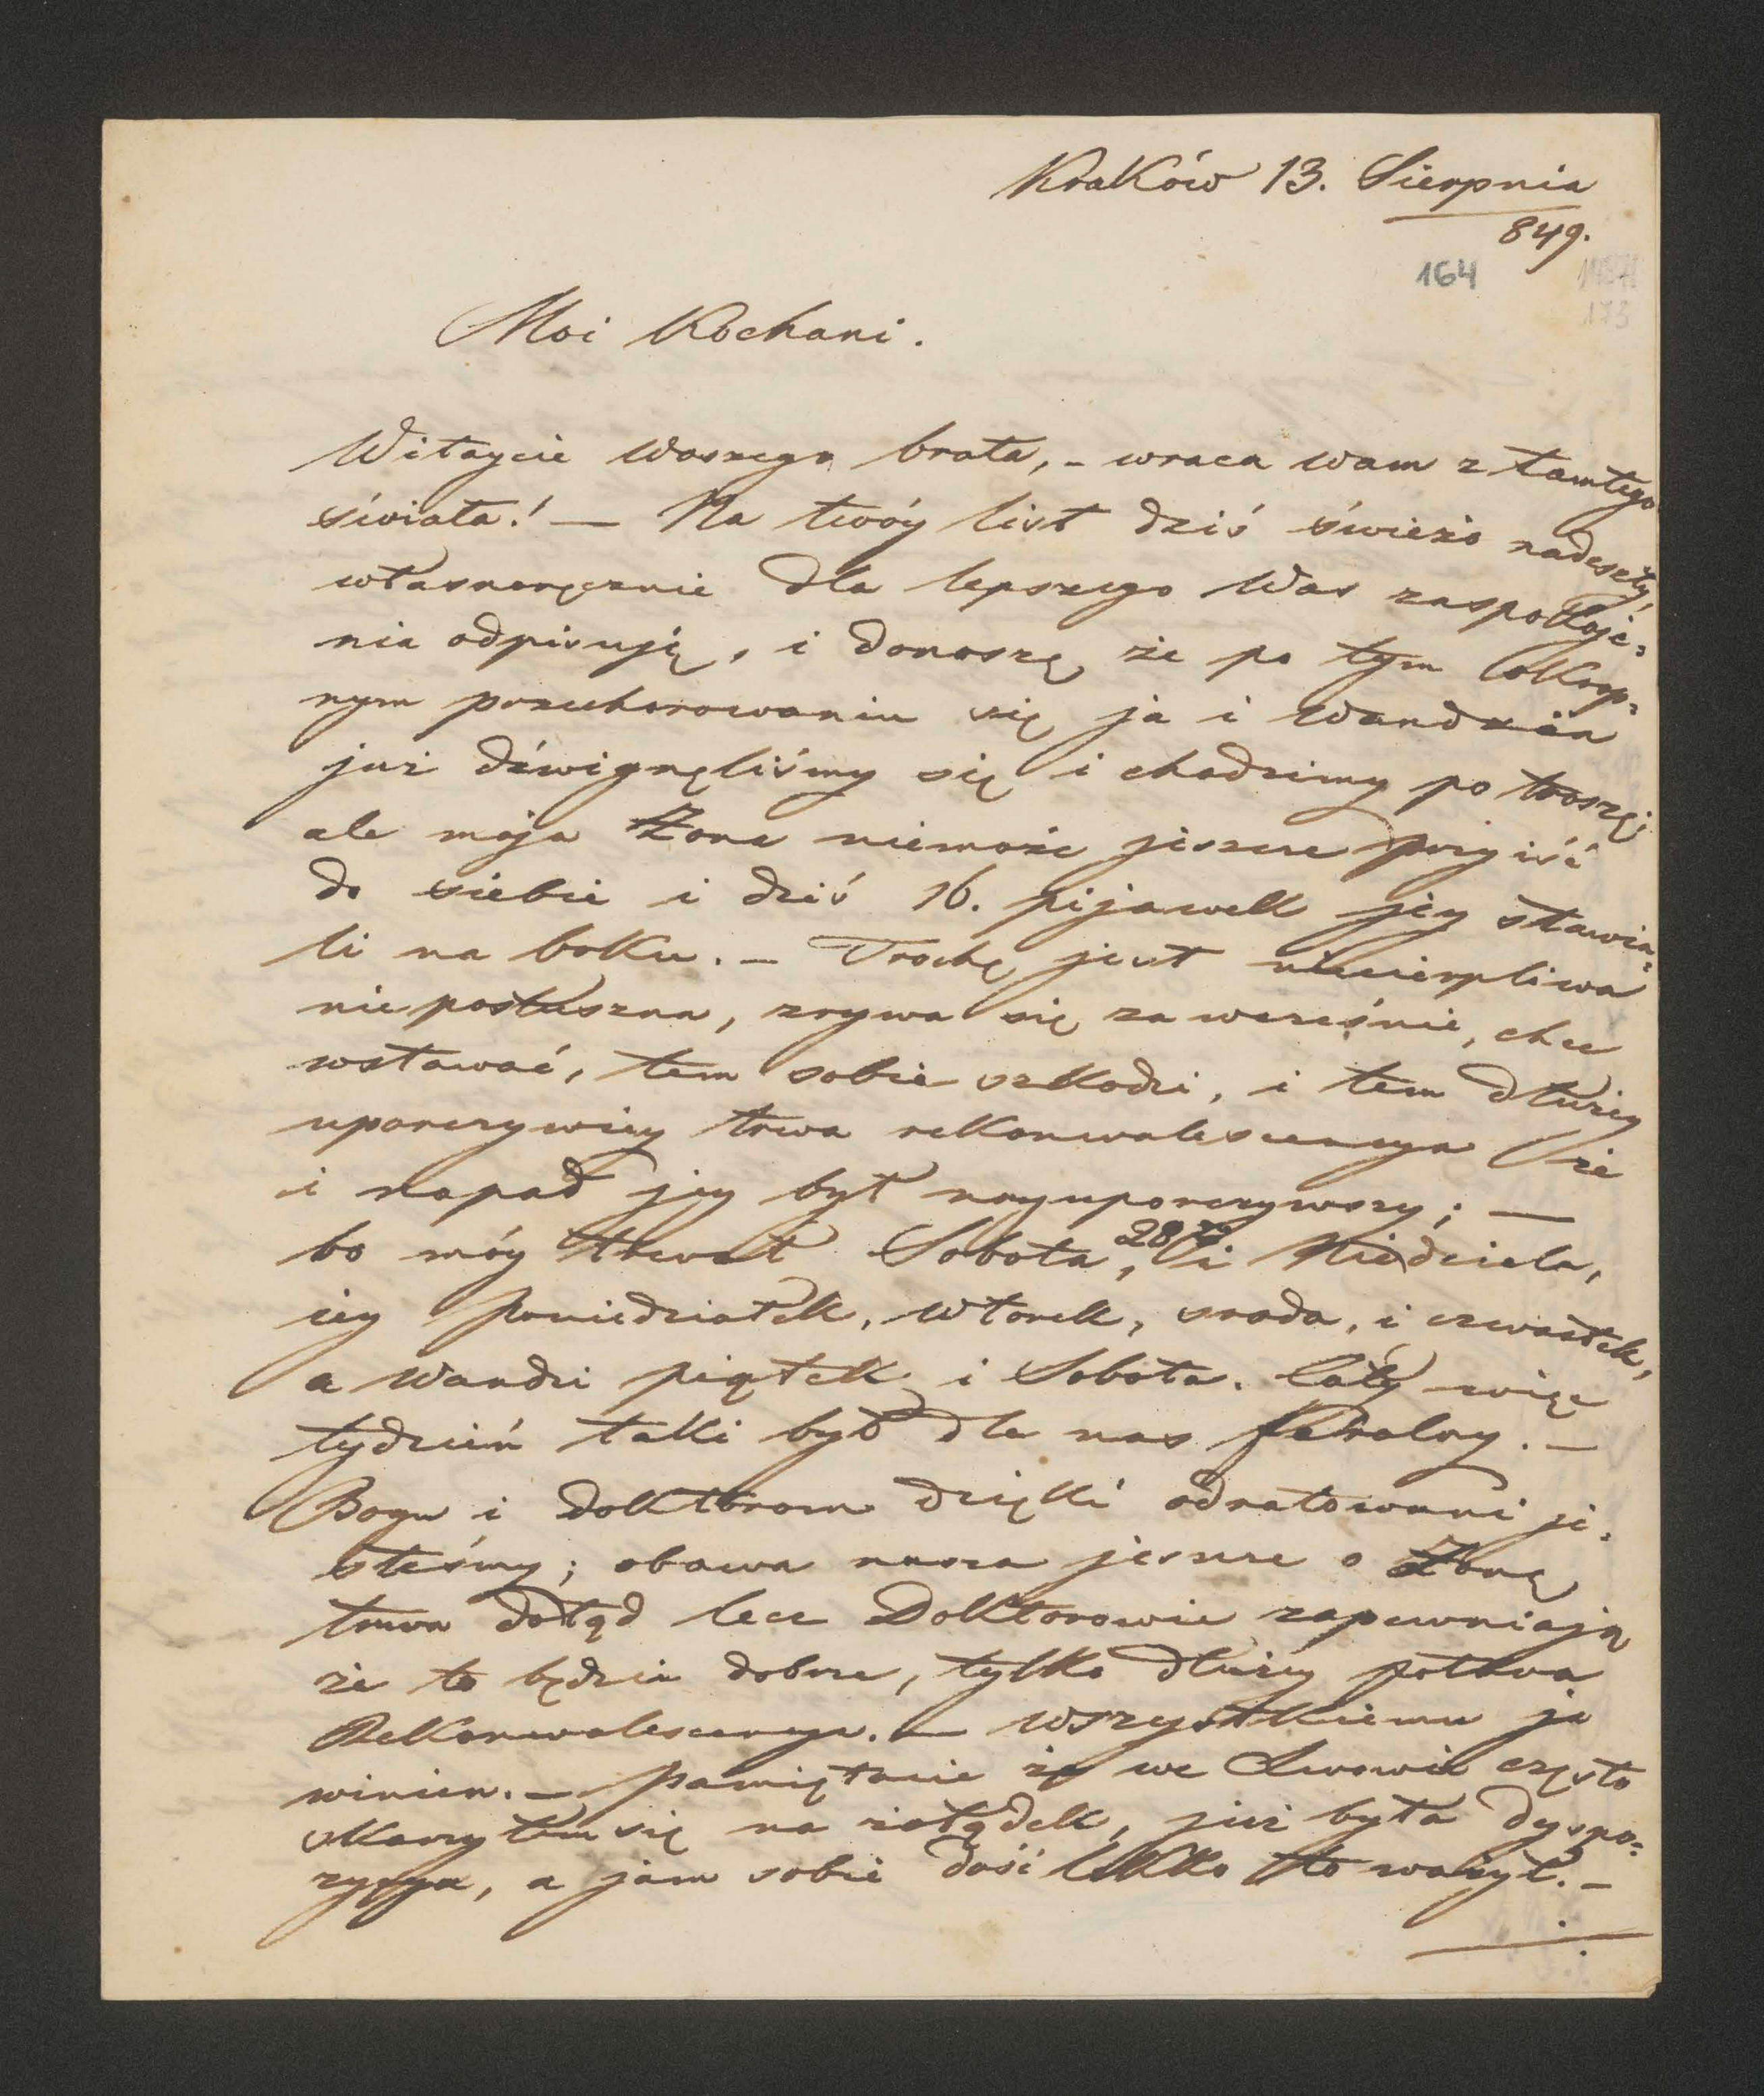 Kraków 13. Sierpnia
849.
164
173
Moi Kochani.
Witaycie Waszego brata, - wraca wam z tamtego
świata! — Na twóy list dziś świeżo nadeszły,
własnoręcznie dla lepszego Was zaspokoje=
nia odpisuję, i donoszę, że po tym okrop=
nym przechorowaniu się ja i Wandzia
już dźwignęliśmy się i chodzimy po troszę;
ale moja Żona niemoże jeszcze przyiść
do siebie i dziś 16. pijawek jéy stawia=
li na boku. — Trochę jest niecierpliwa
nieposłuszna, zrywa się za wcześnie, chce
wstawać, tem sobie szkodzi, i tem dłużey
uporczywiey trwa rekonwalescencya że
i napad jey był nayuporczywszy; —
bo móy trwał Sobota, 28go i Niedziela,
iey Poniedziałek, Wtorek, sroda, i czwartek,
a Wandzi piątek i Sobota. Cały więc
tydzień taki był dla nas feralny. —
Bogu i doktorom dzięki odratowani je=
steśmy; obawa nasza jeszcze o Żonę
trwa dotąd lecz Doktorowie zapewniają
że to będzie dobrze, tylko dłużey potrwa
Rekonwalescencya. — Wszystkiemu ja
winien. — Pamiętacie że we Lwowie często
skarzyłem się na żołądek, już była dyspo=
zycya, a jam sobie dość lekko to ważył. —